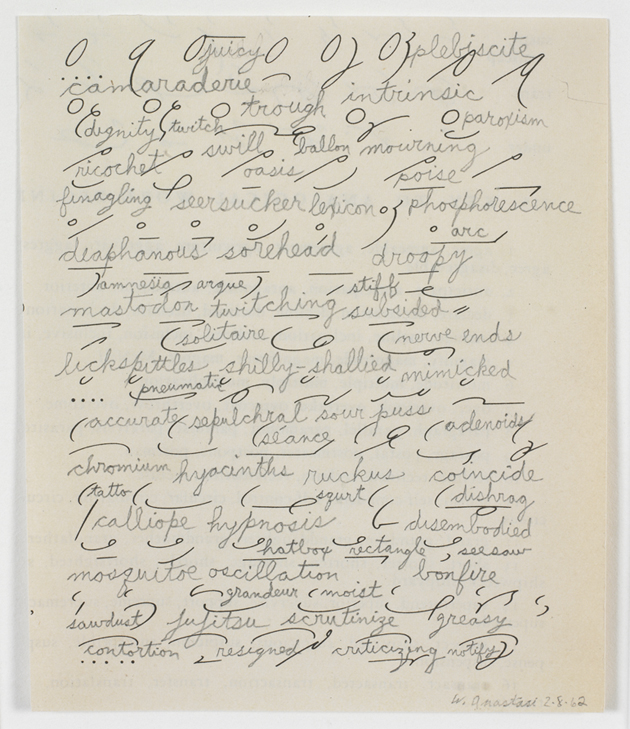 juicy plebiscite
camaraderie trough intrinsic
dignity twitch paroxism
swill ballon mourning
ricochet oasis poise
finagling seersucker lexicon phosphorescence
arc
deaphanous sorehead droopy
amnesia argue stiff
mastodon twitching subsided
solitaire nerve ends
lickspittles shilly-shallied mimicked
pneumatic
accurate sepulchral sour puss adenoids
séance
chromium hyacinths ruckus coincide
tatto squrt dishrag
calliope hypnosis disembodied
hatbox rectangle seesaw
mosquitoe oscillation bonfire
grandeur moist
sawdust jujitsu scrutinize greasy
contortion resigned criticizing notify
W. Anastasi 2-8-62